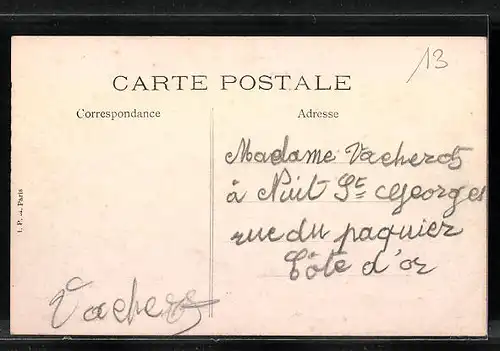 13
CARTE POSTALE
Correspondance
Adresse
Madame Vacherot
à Nuit St Georges
rue du paquier
Côte d'or
Vacherot